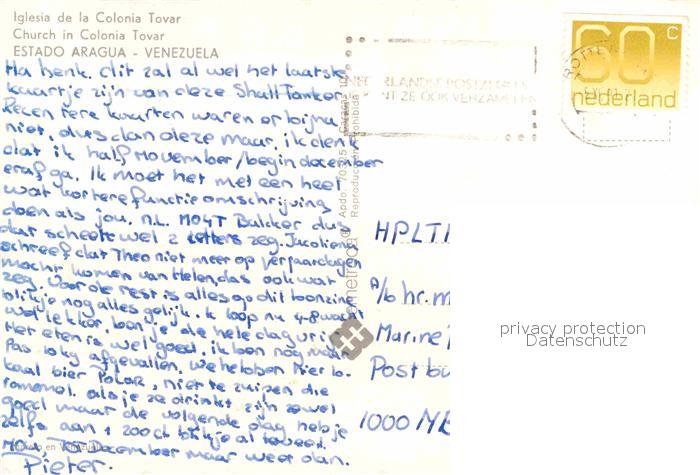 Iglesia de la Colonia Tovar
Church in Colonia Tovar
ESTADO ARAGUA - VENEZUELA
60 c
nederland
NEDERLANDSE POSTZEGELS
ZE OOK VERZAMELEN
Ha henk. dit zal al wel het laatste
kaartje zijn van deze Shell Tanker
Recentere kaarten waren er bijna
niet, dus dan deze maar. ik denk
dat ik half November/begin december
eraf ga. Ik moet het met een heel
wat kortere functie omschrijving
doen als jou. N.L. MO4T Bakker dus
dat scheelt wel 2 letters zeg. Jacolien
schreef dat Theo niet meer op verjaardagen
mocht komen van Helen, das ook wat
zeg. Voor de rest is alles op dit
blikje nog alles gelijk. ik loop nu 4-8 wacht
wel lekker, ben je de hele dag vrij
Het eten is wel goed. ik ben nog maar
pas 10 kg afgevallen. We hebben hier lo-
kaal bier Polar, niet te zuipen die
rommel. als je ze drinkt zijn ze wel
goed maar de volgende dag heb je
zelfs aan 1 200cl blikje al teveel.
December maar weer dan.
Pieter.
Apdo. 70325
Reproduccion Prohibida
HPLTI
A/b hr. m
Marine
Postbu
1000 ME
en Venezuela
privacy protection
Datenschutz